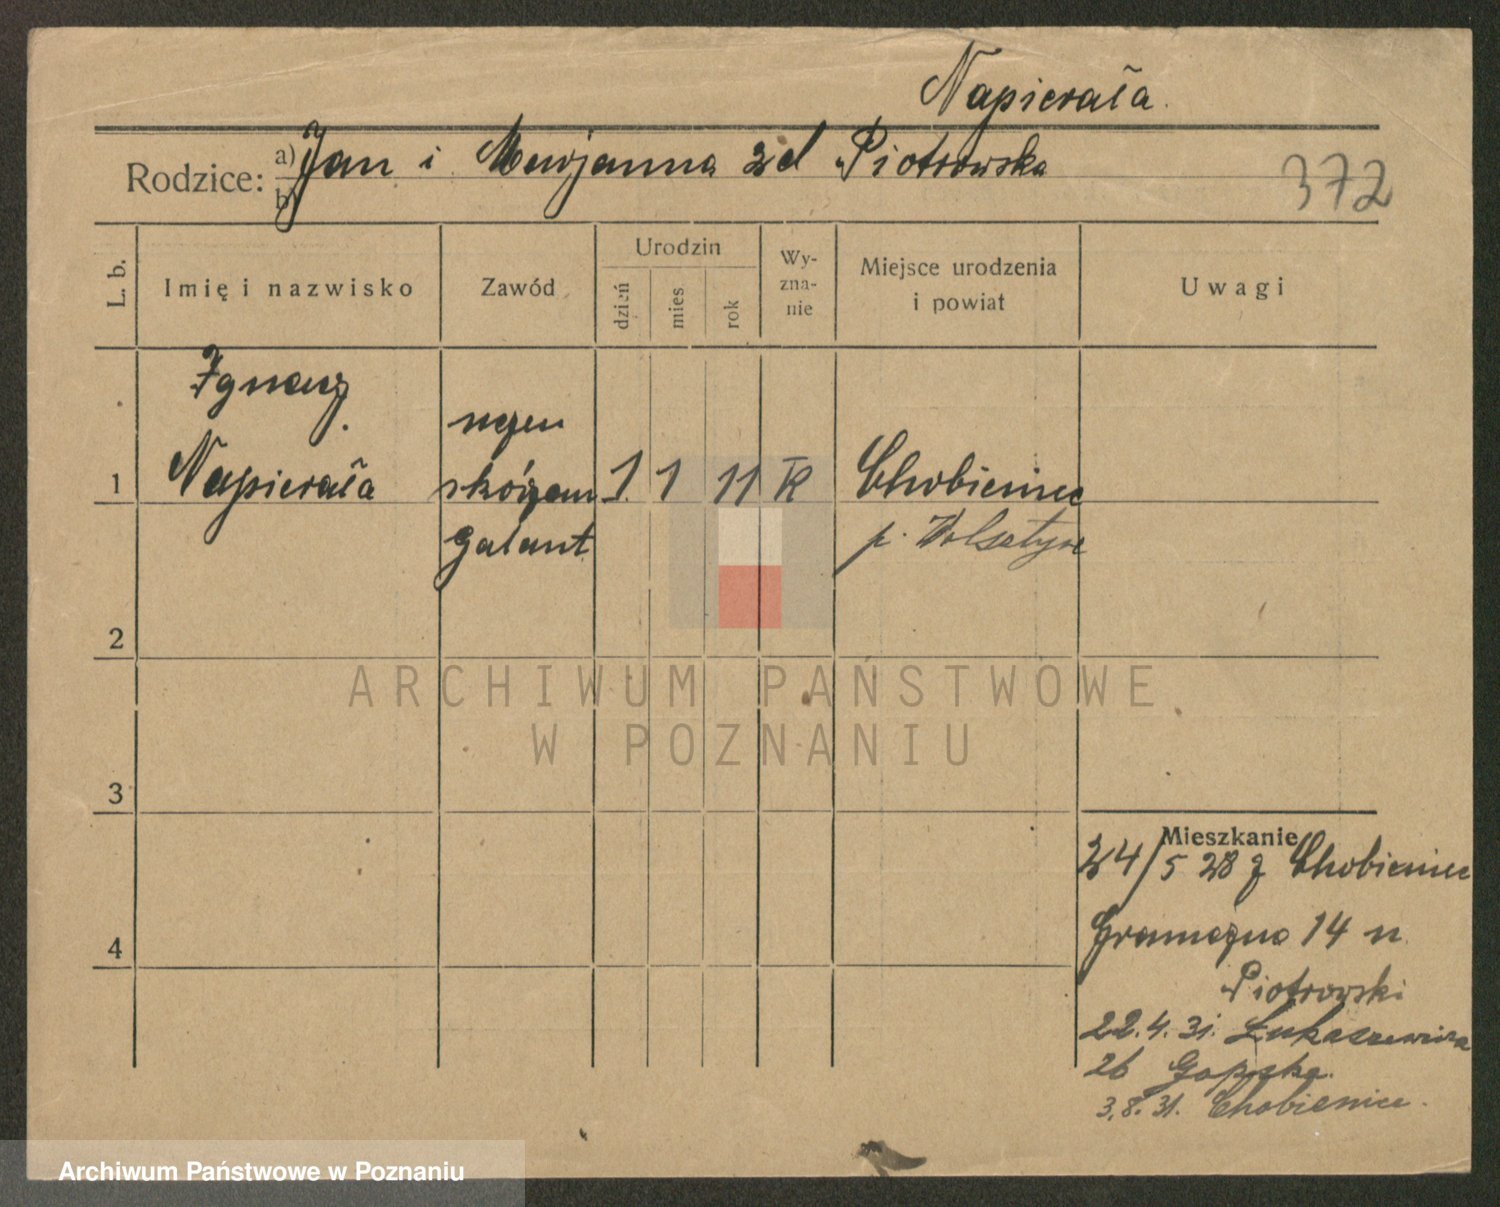 Napierała.
Rodzice: a) Jan i Marjanna zd Piotrowska
b)
372
L. b.
Imię i nazwisko
Zawód
Urodzin
dzień
mies
rok
Wy-
zna-
nie
Miejsce urodzenia
i powiat
Uwagi
Ignacy
uczeń
1 Napierała
1 1 11 K Chobienice
galant
p. Wolsztyn
2
ARCHIWUM PAŃSTWOWE
W POZNANIU
3
Mieszkanie
24/5 28 z Chobienice
4
14 u
Piotrowski
22.4.31. Łukaszewicza
26
3.8.31. Chobienice.
Archiwum Państwowe w Poznaniu